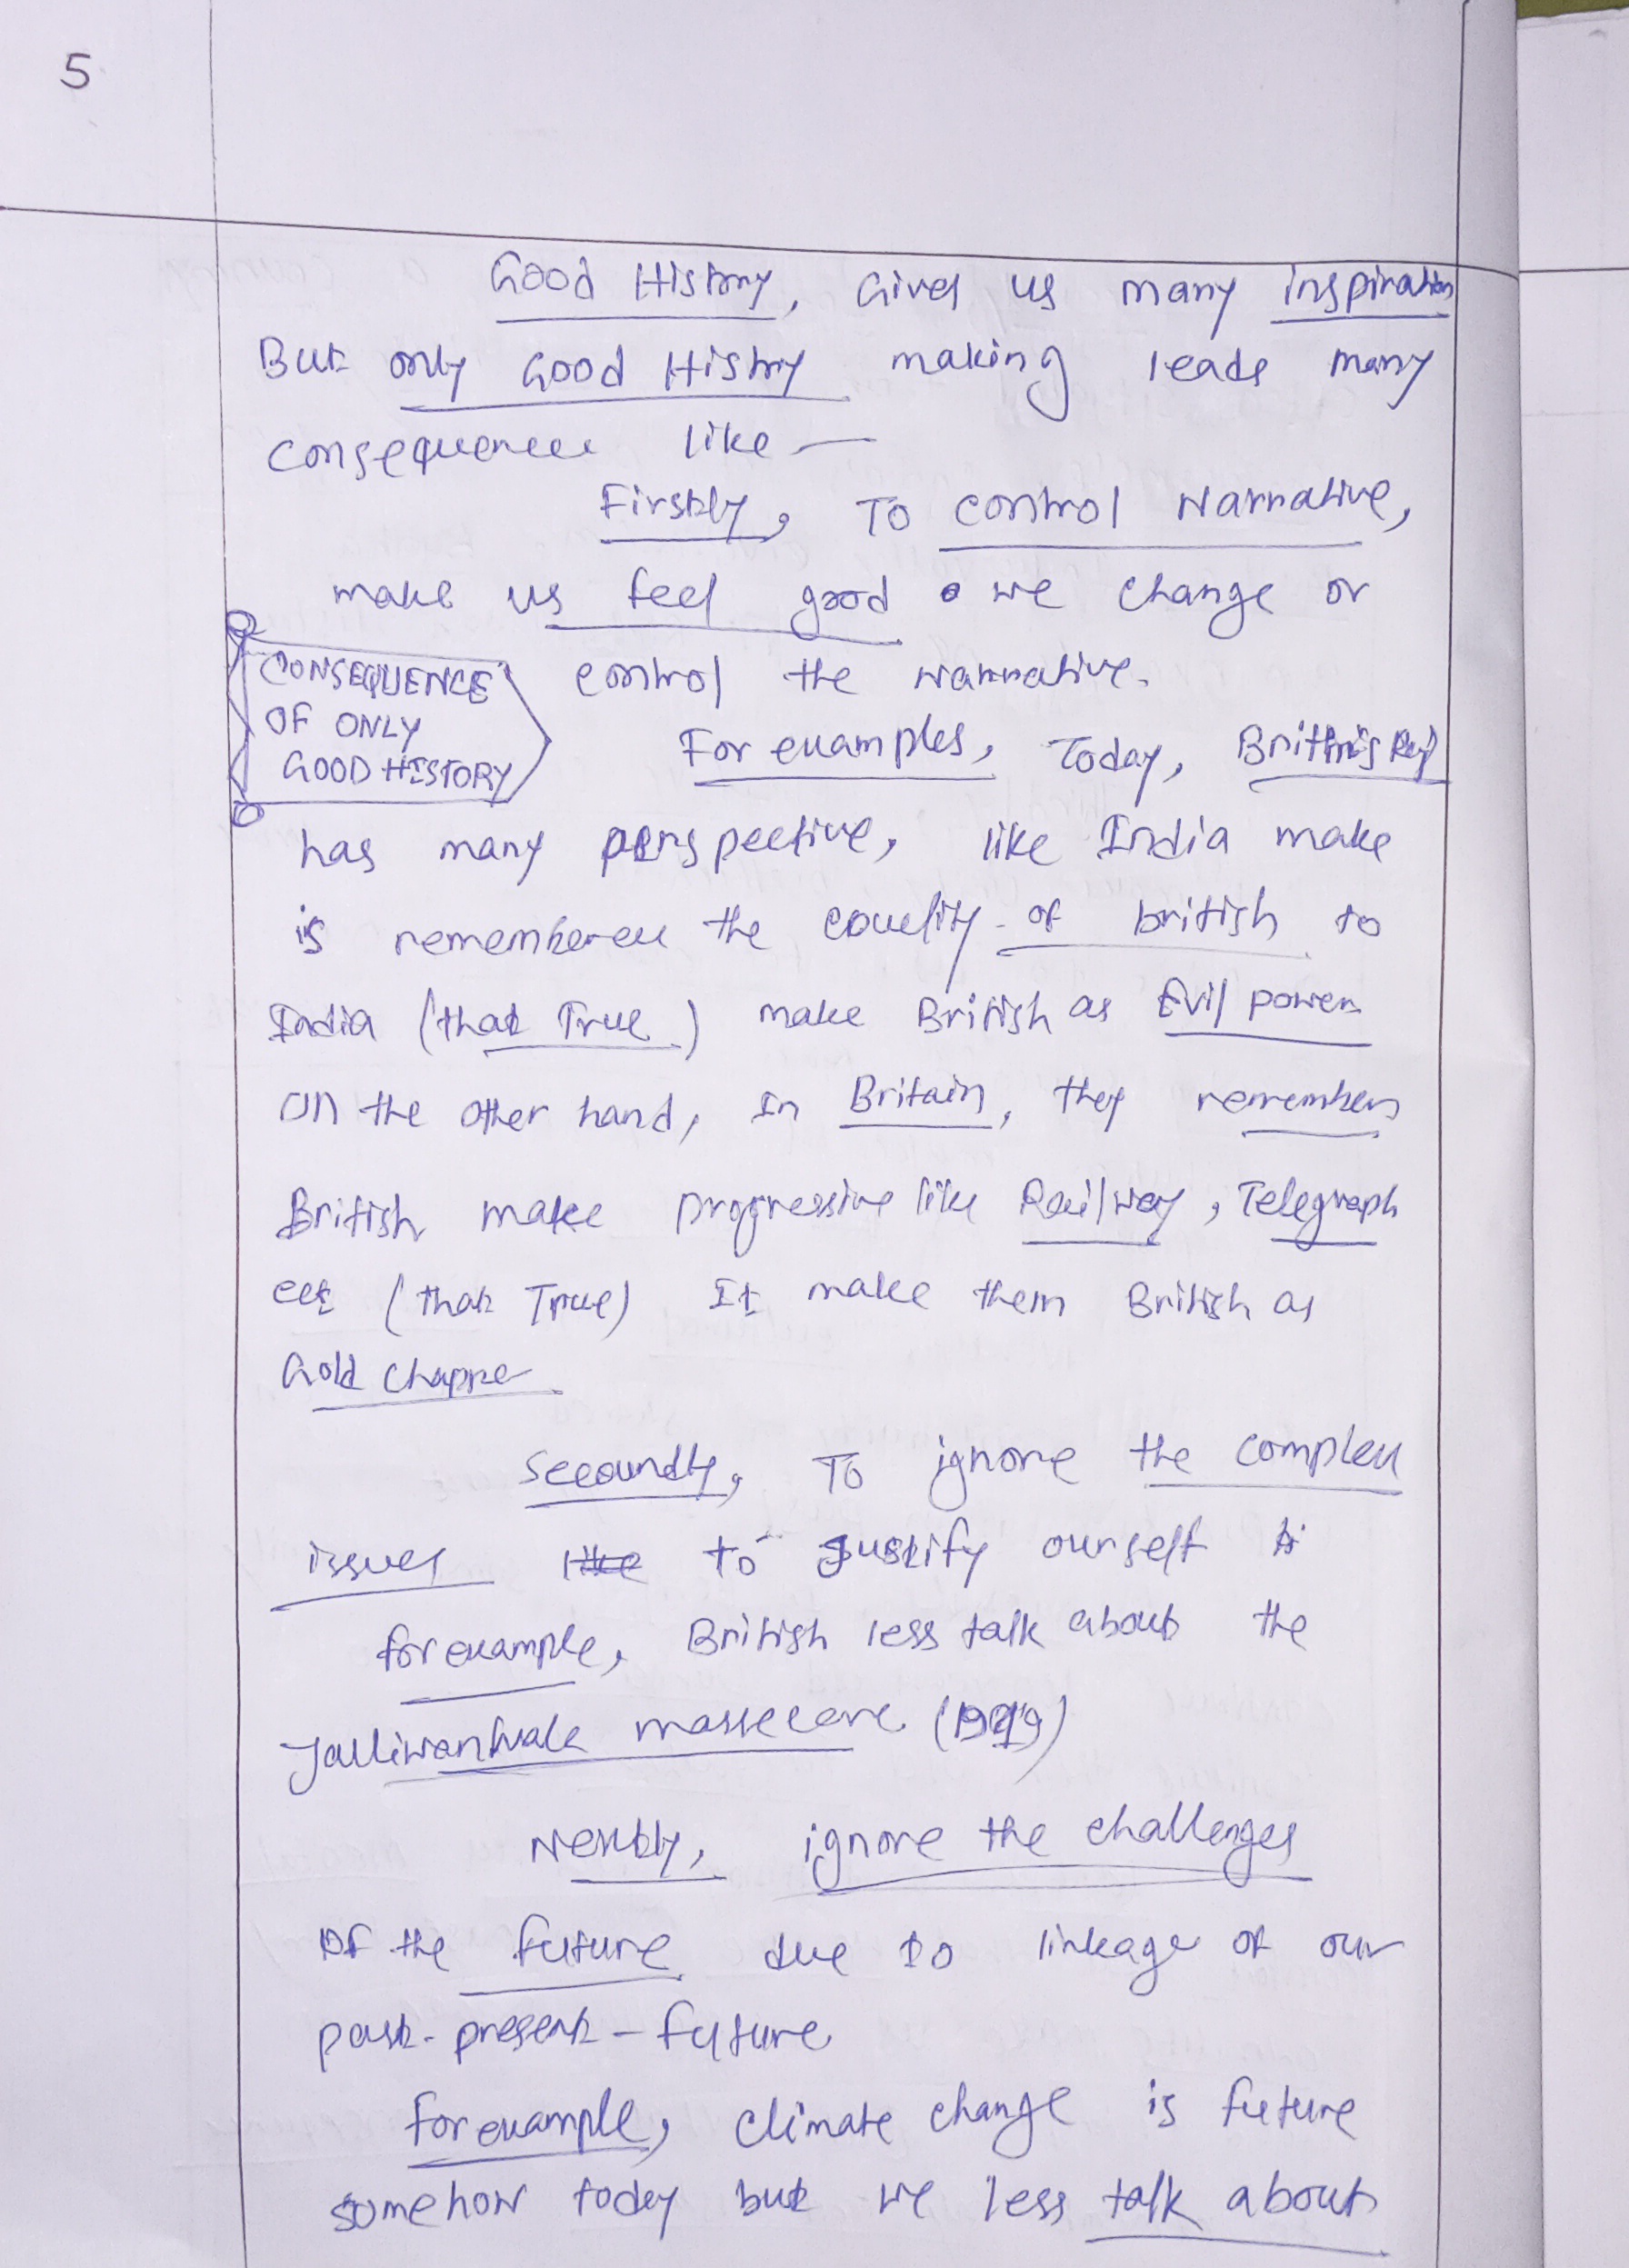 5
Good History, Gives us many inspiration
But only Good History making leads many
consequences like —
Firstly, To control Narrative,
make us feel good we change or
CONSEQUENCE
OF ONLY
GOOD HISTORY
control the narrative.
For examples, Today, British Raj
has many perspective, like India make
is remember the of british to
India (that True) make British as Evil power
On the other hand, In Britain, they remember
British make progressive like Railway, Telegraph
etc (that True) It make them British as
Gold
Secoundly, To ignore the complex
issues to justify ourself
for example, British less talk about the
Jalliwanwala massecare (1919)
Nextly, ignore the challenges
Of the future due to linkage of our
past - present - future
for example, climate change is future
somehow today but we less talk about